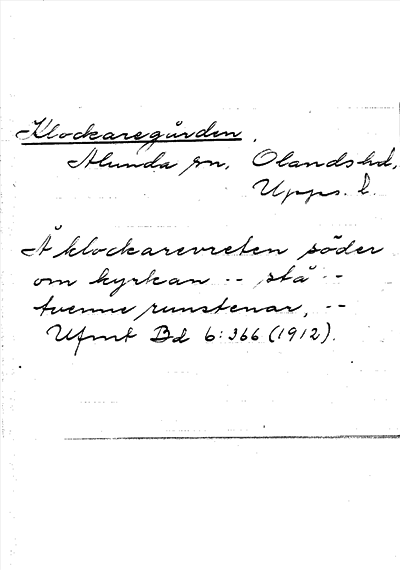 Klockaregården.
Alunda sn, Olandshd,
Upps. l.
Å klockarevreten söder
om kyrkan -- stå --
tvenne runstenar, --
Ufmt Bd 6:366 (1912).